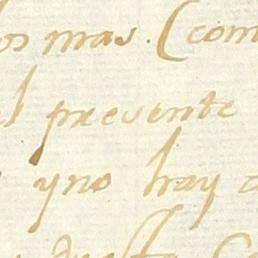 os mas. (com
l presente
yno hay